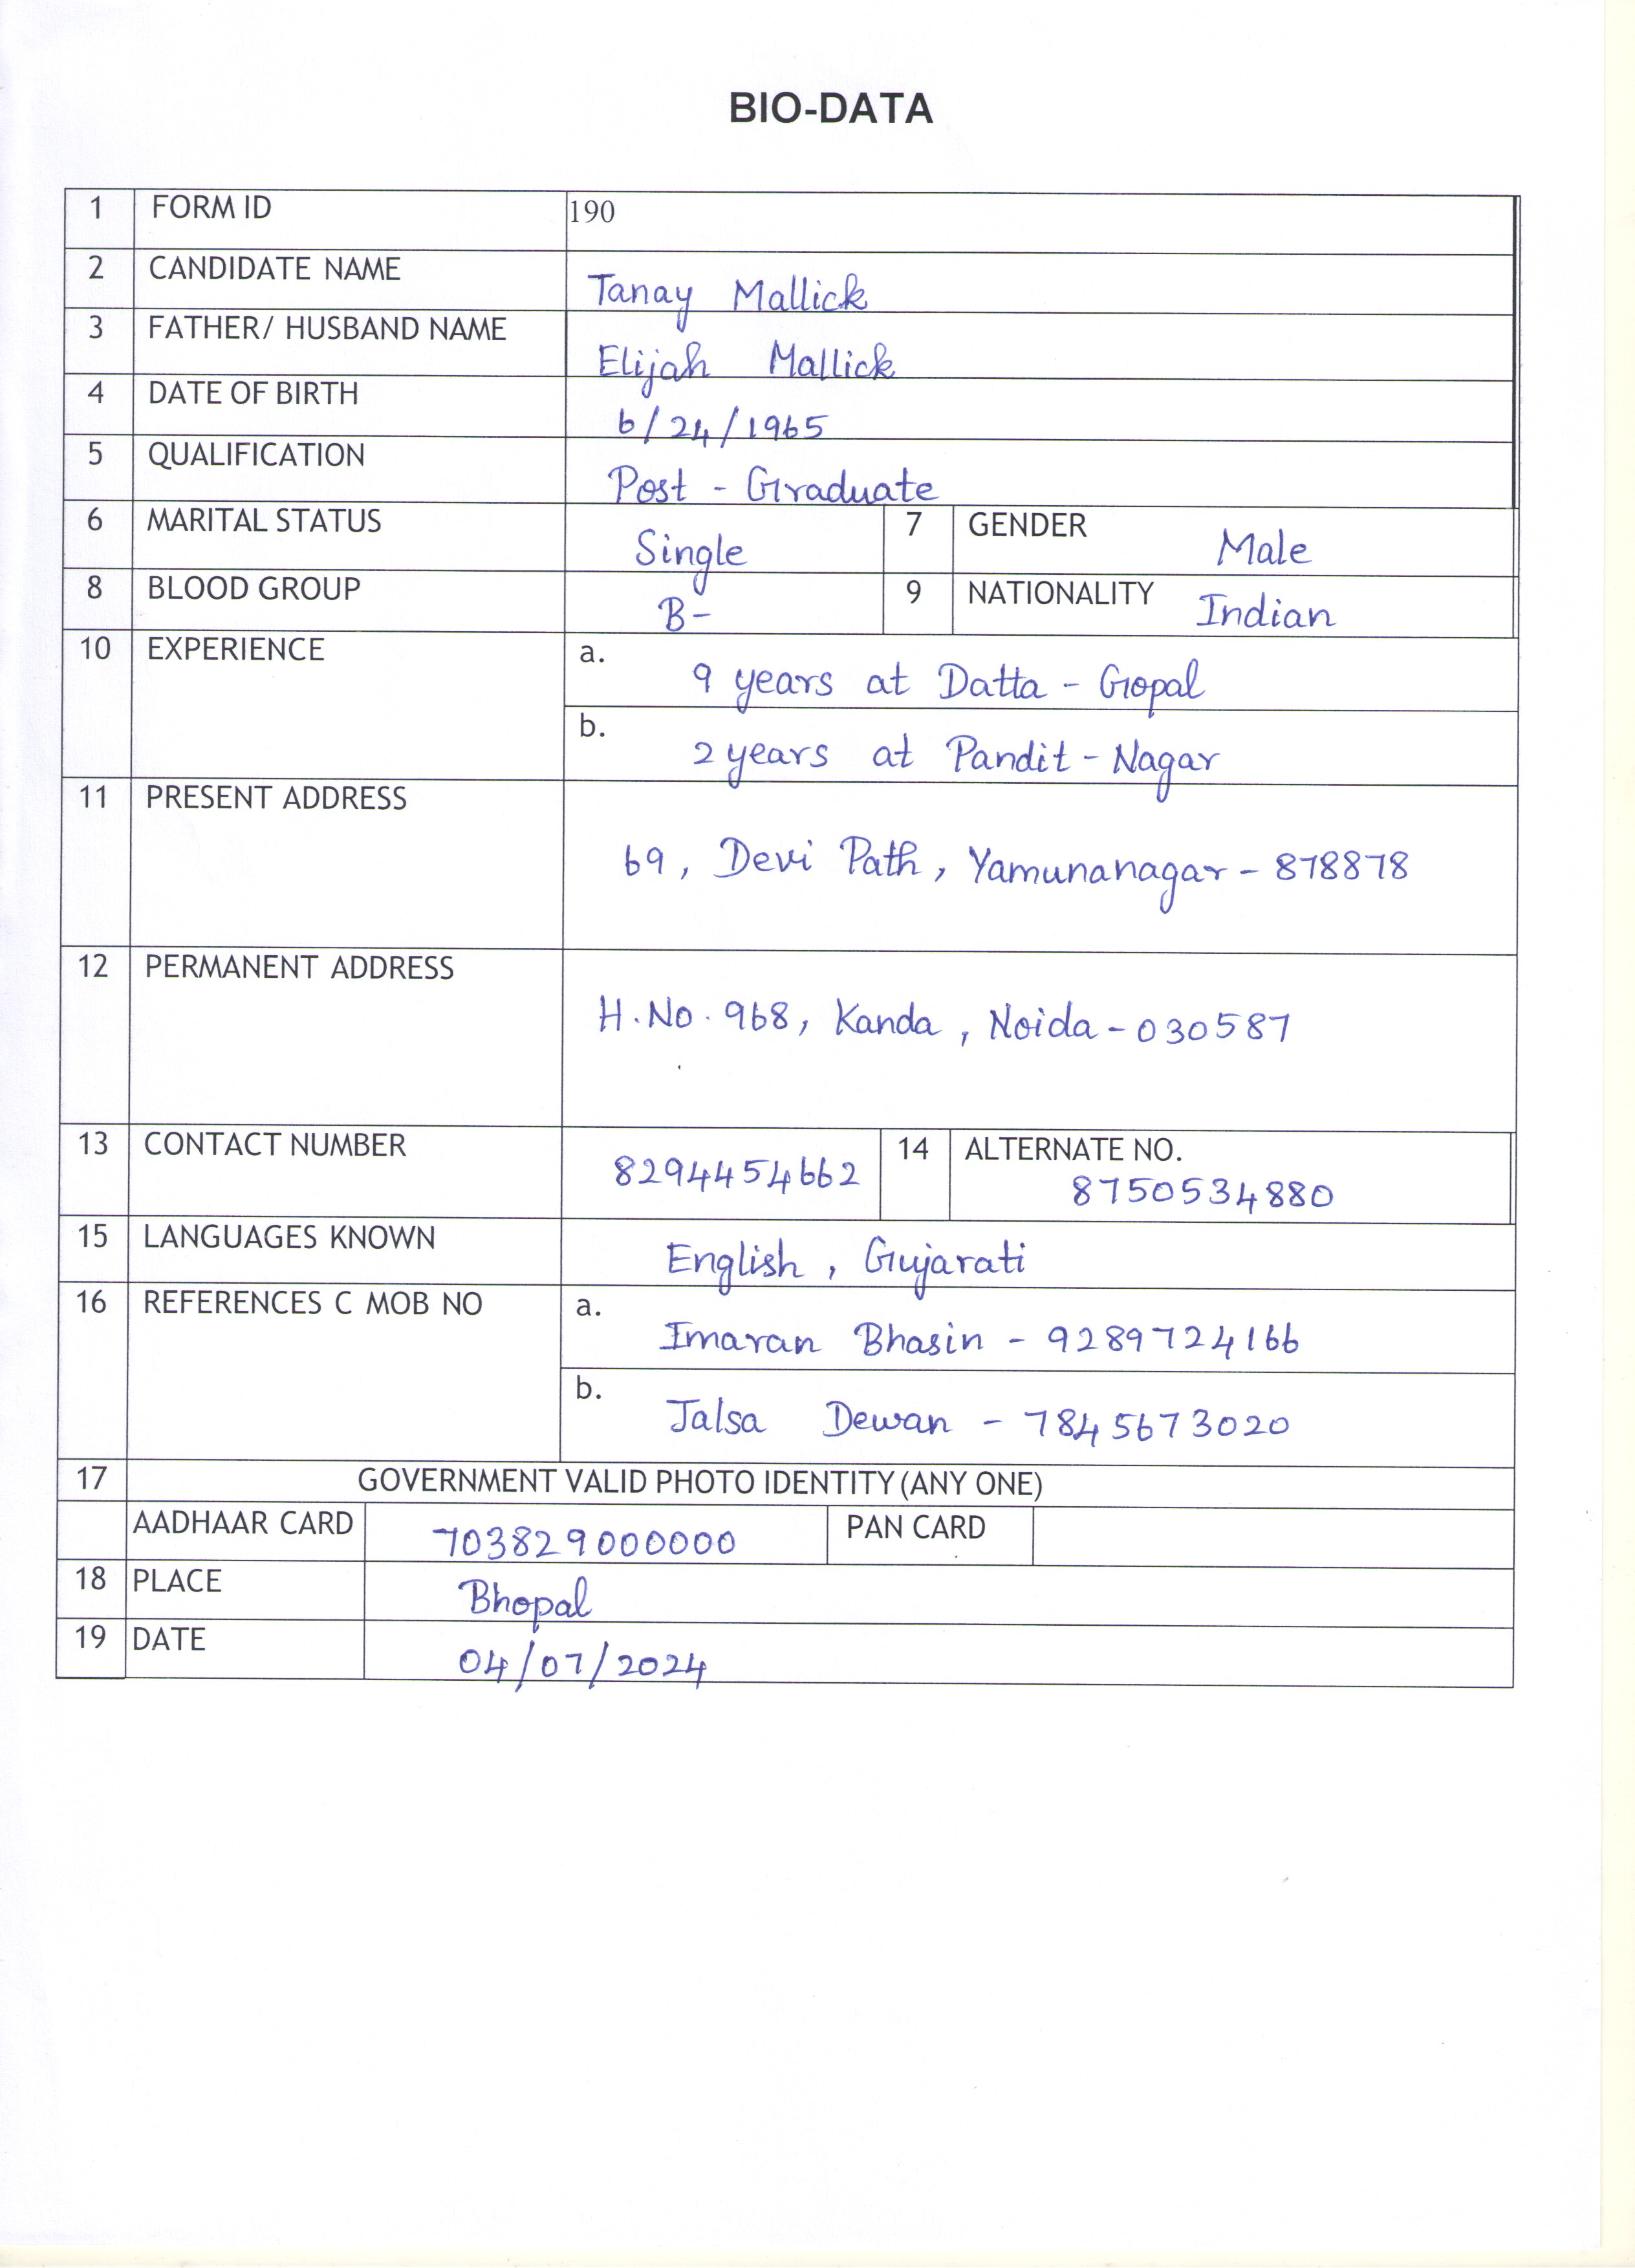 BIO-DATA
1 FORM ID 190
2 CANDIDATE NAME Tanay Mallick
3 FATHER/ HUSBAND NAME Elijah Mallick
4 DATE OF BIRTH 6/24/1965
5 QUALIFICATION Post - Graduate
6 MARITAL STATUS Single 7 GENDER Male
8 BLOOD GROUP B- 9 NATIONALITY Indian
10 EXPERIENCE a. 9 years at Datta - Gopal
b. 2 years at Pandit - Nagar
11 PRESENT ADDRESS
69, Devi Path, Yamunanagar - 878878
12 PERMANENT ADDRESS
H.No. 968, Kanda, Noida - 030587
13 CONTACT NUMBER 8294454662 14 ALTERNATE NO.
8750534880
15 LANGUAGES KNOWN English, Gujarati
16 REFERENCES C MOB NO a. Imaran Bhasin - 9289724166
b. Jalsa Dewan - 7845673020
17 GOVERNMENT VALID PHOTO IDENTITY (ANY ONE)
AADHAAR CARD 703829000000 PAN CARD
18 PLACE Bhopal
19 DATE 04/07/2024